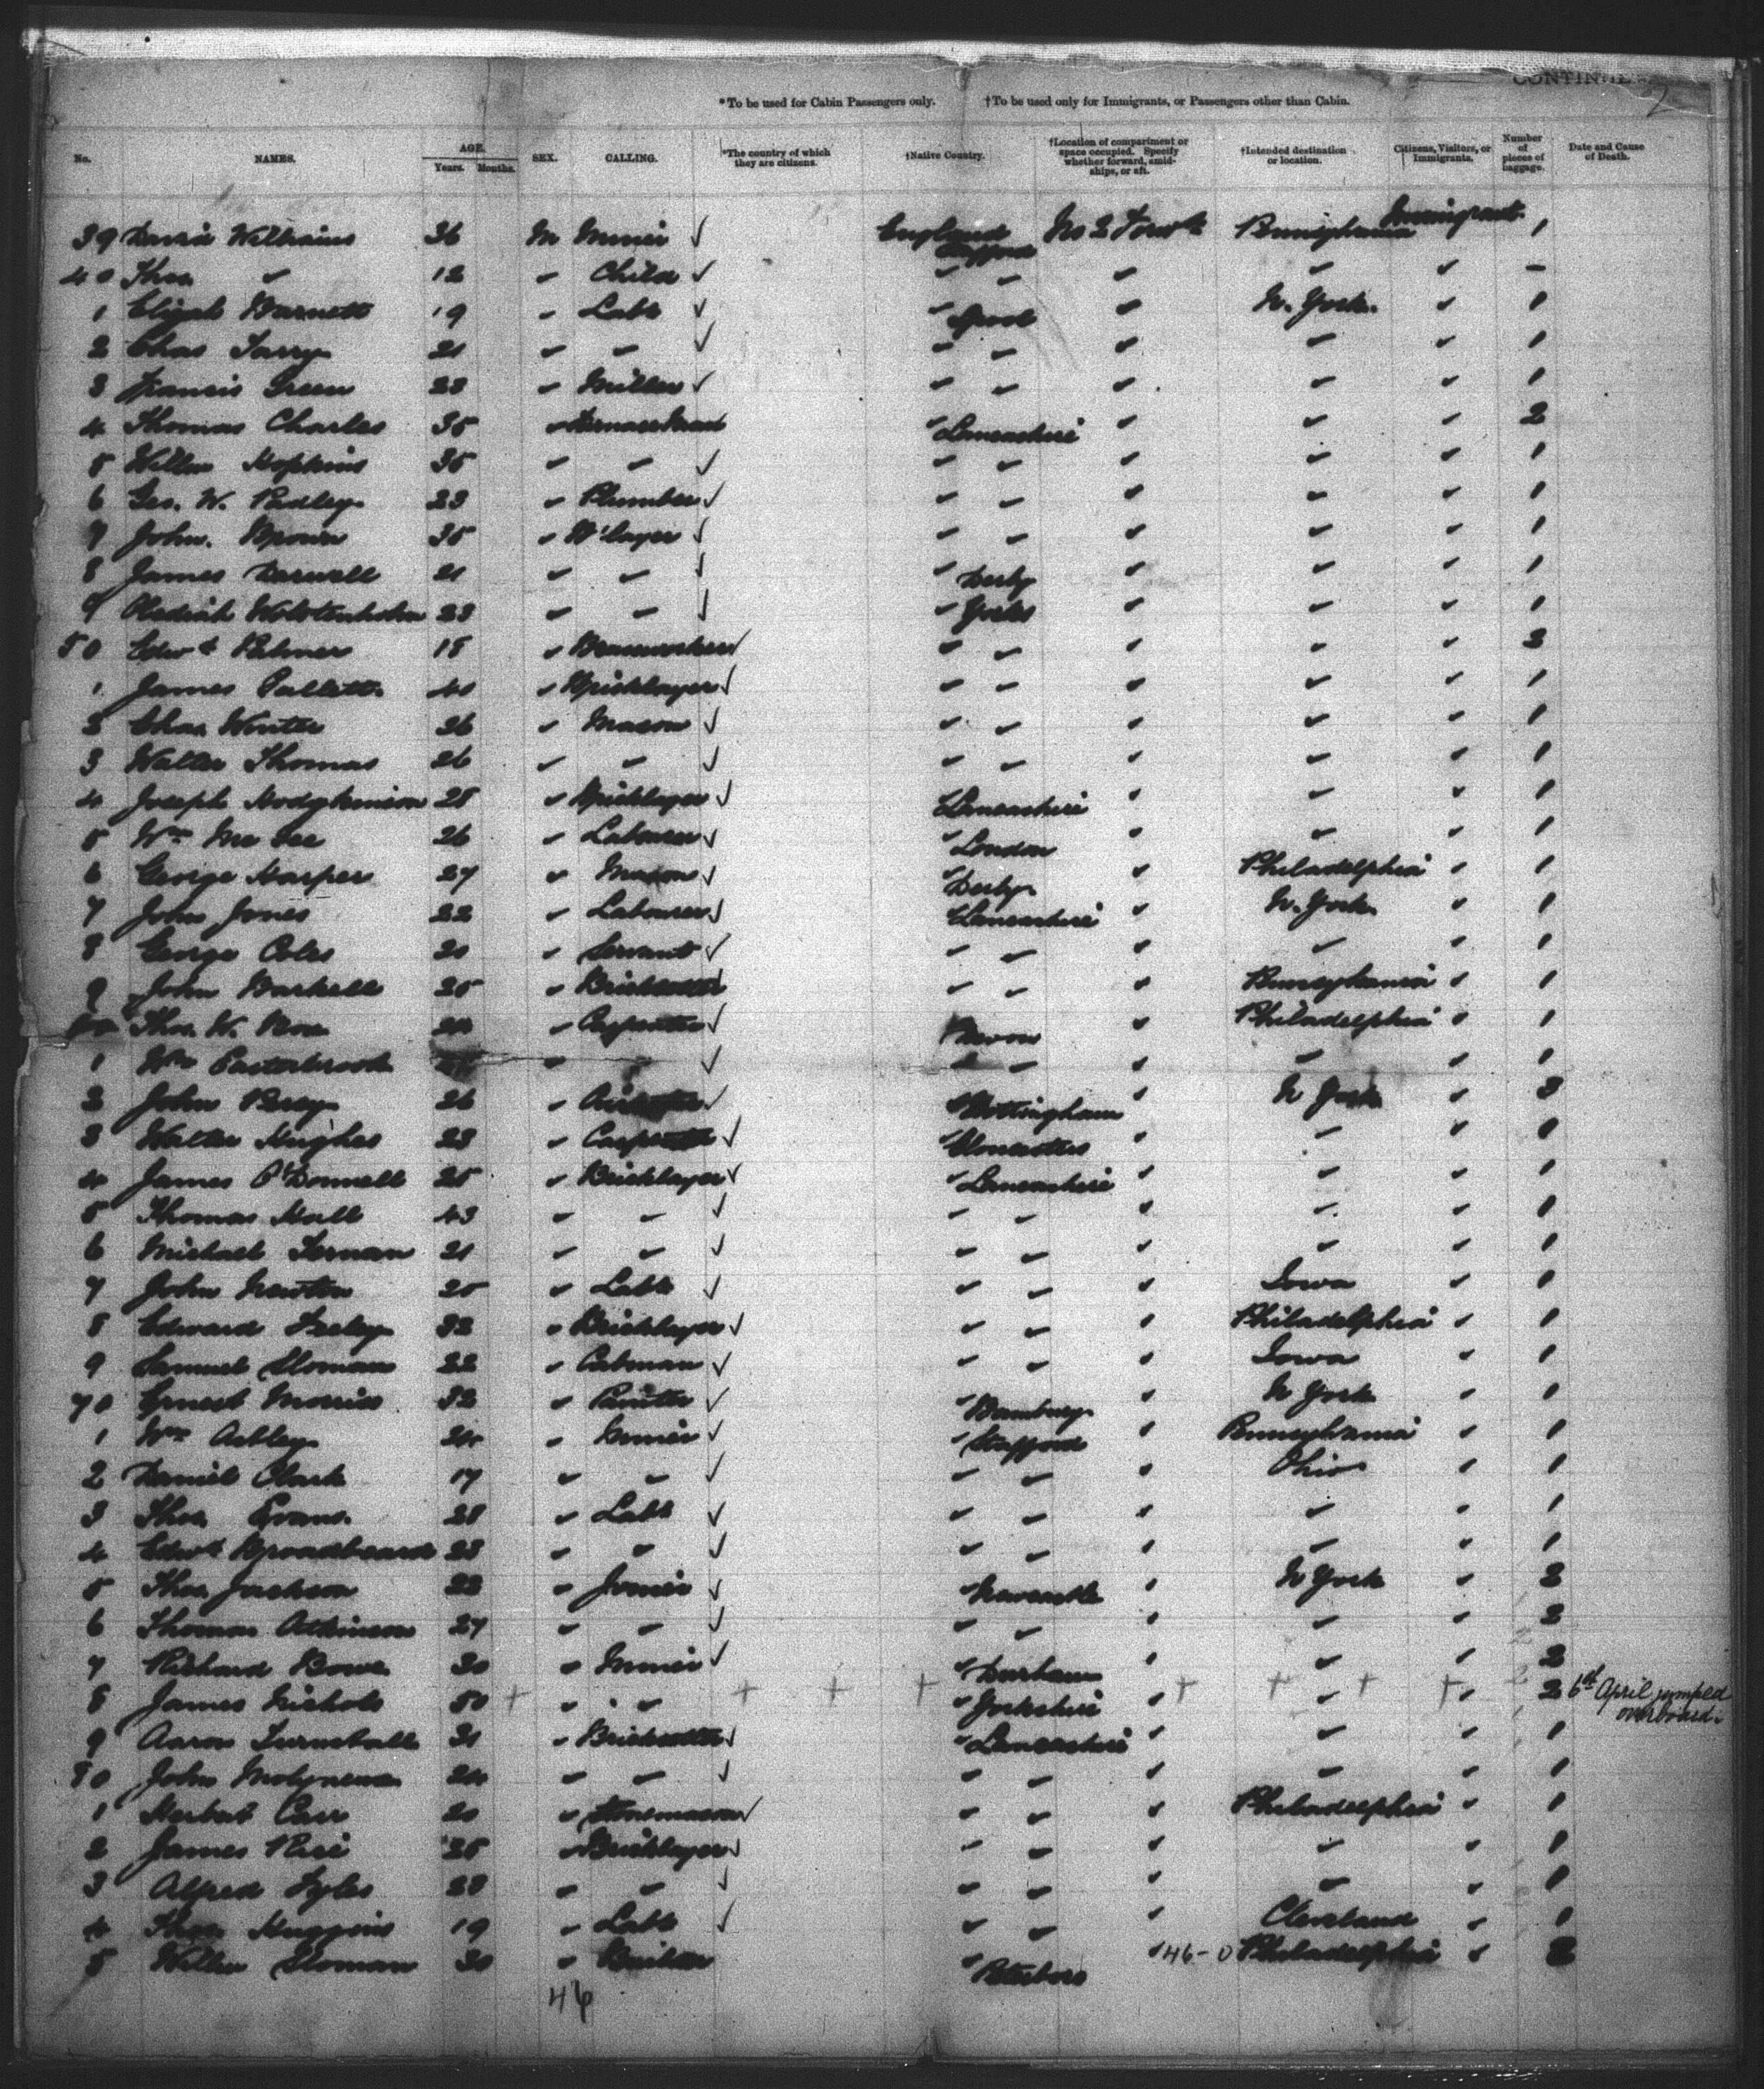 CONTINUED
2
*To be used for Cabin Passengers only. †To be used only for Immigrants, or Passengers other than Cabin.
No. NAMES. AGE. Years. Months. SEX. CALLING. *The country of which they are citizens. †Native Country. †Location of compartment or space occupied. Specify whether forward, amidships, or aft. †Intended destination or location. Citizens, Visitors, or Immigrants. Number of pieces of baggage. Date and Cause of Death.
39 David Williams 36 M Miner ✓ England Stafford No 2 Forwd Pennsylvania Immigrant 1
40 Thos. " 12 " Child ✓ " " " " " -
1 Elijah Barnett 19 " Labr ✓ " Lpool " N. York. " 1
2 Chas Tarry 21 " " ✓ " " " " " 1
3 Francis Green 23 " Miller ✓ " " " " " 1
4 Thomas Charles 35 " Furnaceman " Lancashire " " " 2
5 Willm Hopkins 35 " " ✓ " " " " " 1
6 Geo. W. Padley 23 " Plumber ✓ " " " " " 1
7 John. Brown 35 " B'layer ✓ " " " " " 1
8 James Darwell 21 " " ✓ " Derby " " " 1
9 Obediah Wolstenholm 23 " " ✓ " Yorks " " " 1
50 Edwd Palmer 18 " ✓ " " " " " 3
1 James Pallett 40 " Bricklayer ✓ " " " " " 1
2 Chas. Winter 26 " Mason ✓ " " " " " 1
3 Walter Thomas 26 " " ✓ " " " " " 1
4 Joseph Hodgkinson 28 " Bricklayer ✓ " Lancashire " " " 1
5 Wm Mc Gee 26 " Labourer ✓ " London " " " 1
6 George Harper 27 " Mason ✓ " Derby " Philadelphia " 1
7 John Jones 22 " Labourer ✓ " Lancashire " N. York " 1
8 George Coles 21 " Servant ✓ " " " " " 1
9 John Barkell 25 " " " " Pennsylvania " 1
Thos. W. " Carpenter ✓ " Devon " Philadelphia " 1
1 Wm Easterbrook " ✓ " " " " " 1
2 John Percy 26 " ✓ " Nottingham " N York " 3
3 Walter Hughes 23 " Carpenter ✓ " Gloucester " " " 1
4 James O'Donnell 25 " Bricklayer ✓ " Lancashire " " " 1
5 Thomas Hall 43 " " ✓ " " " " " 1
6 Michael 21 " " ✓ " " " " " 1
7 John Newton 25 " Labr ✓ " " " Iowa " 1
8 Edward Feeley 32 " Bricklayer ✓ " " " Philadelphia " 1
9 Samuel Sloman 22 " Cabman ✓ " " " Iowa " 1
70 Ernest Morris 32 " Painter ✓ " Banbury " N York " 1
1 Wm Astley 24 " Miner ✓ " Stafford " Pennsylvania " 1
2 Daniel Clark 17 " " ✓ " " " Ohio " 1
3 Thos. Evans. 28 " Labr ✓ " " " " " 1
4 Edwd 23 " " ✓ " " " " " 1
5 Thos. Jackson 22 " Joiner ✓ " Newcastle " N York " 2
6 Thomas Atkinson 27 " " ✓ " " " " " 2
7 Richard Bowe 30 " Miner ✓ " Durham " " 2
8 James Nichols 50 + " " + + + " Yorkshire " + + " + " 2 6th April jumped overboard.
9 Aaron Turnbull 31 " ✓ " Lancashire " " " 1
80 John Molyneux 24 " " ✓ " " " " " 1
1 Herbert Carr 21 " Stonemason ✓ " " " Philadelphia " 1
2 James Rice 25 " Bricklayer ✓ " " " " " 1
3 Alfred Tyles 28 " " ✓ " " " " " 1
4 Thos Huggins 19 " Labr ✓ " " " Cleveland " 1
5 Willm Sloman 30 " Builder " Peterboro " 46-0 Philadelphia " 2
46